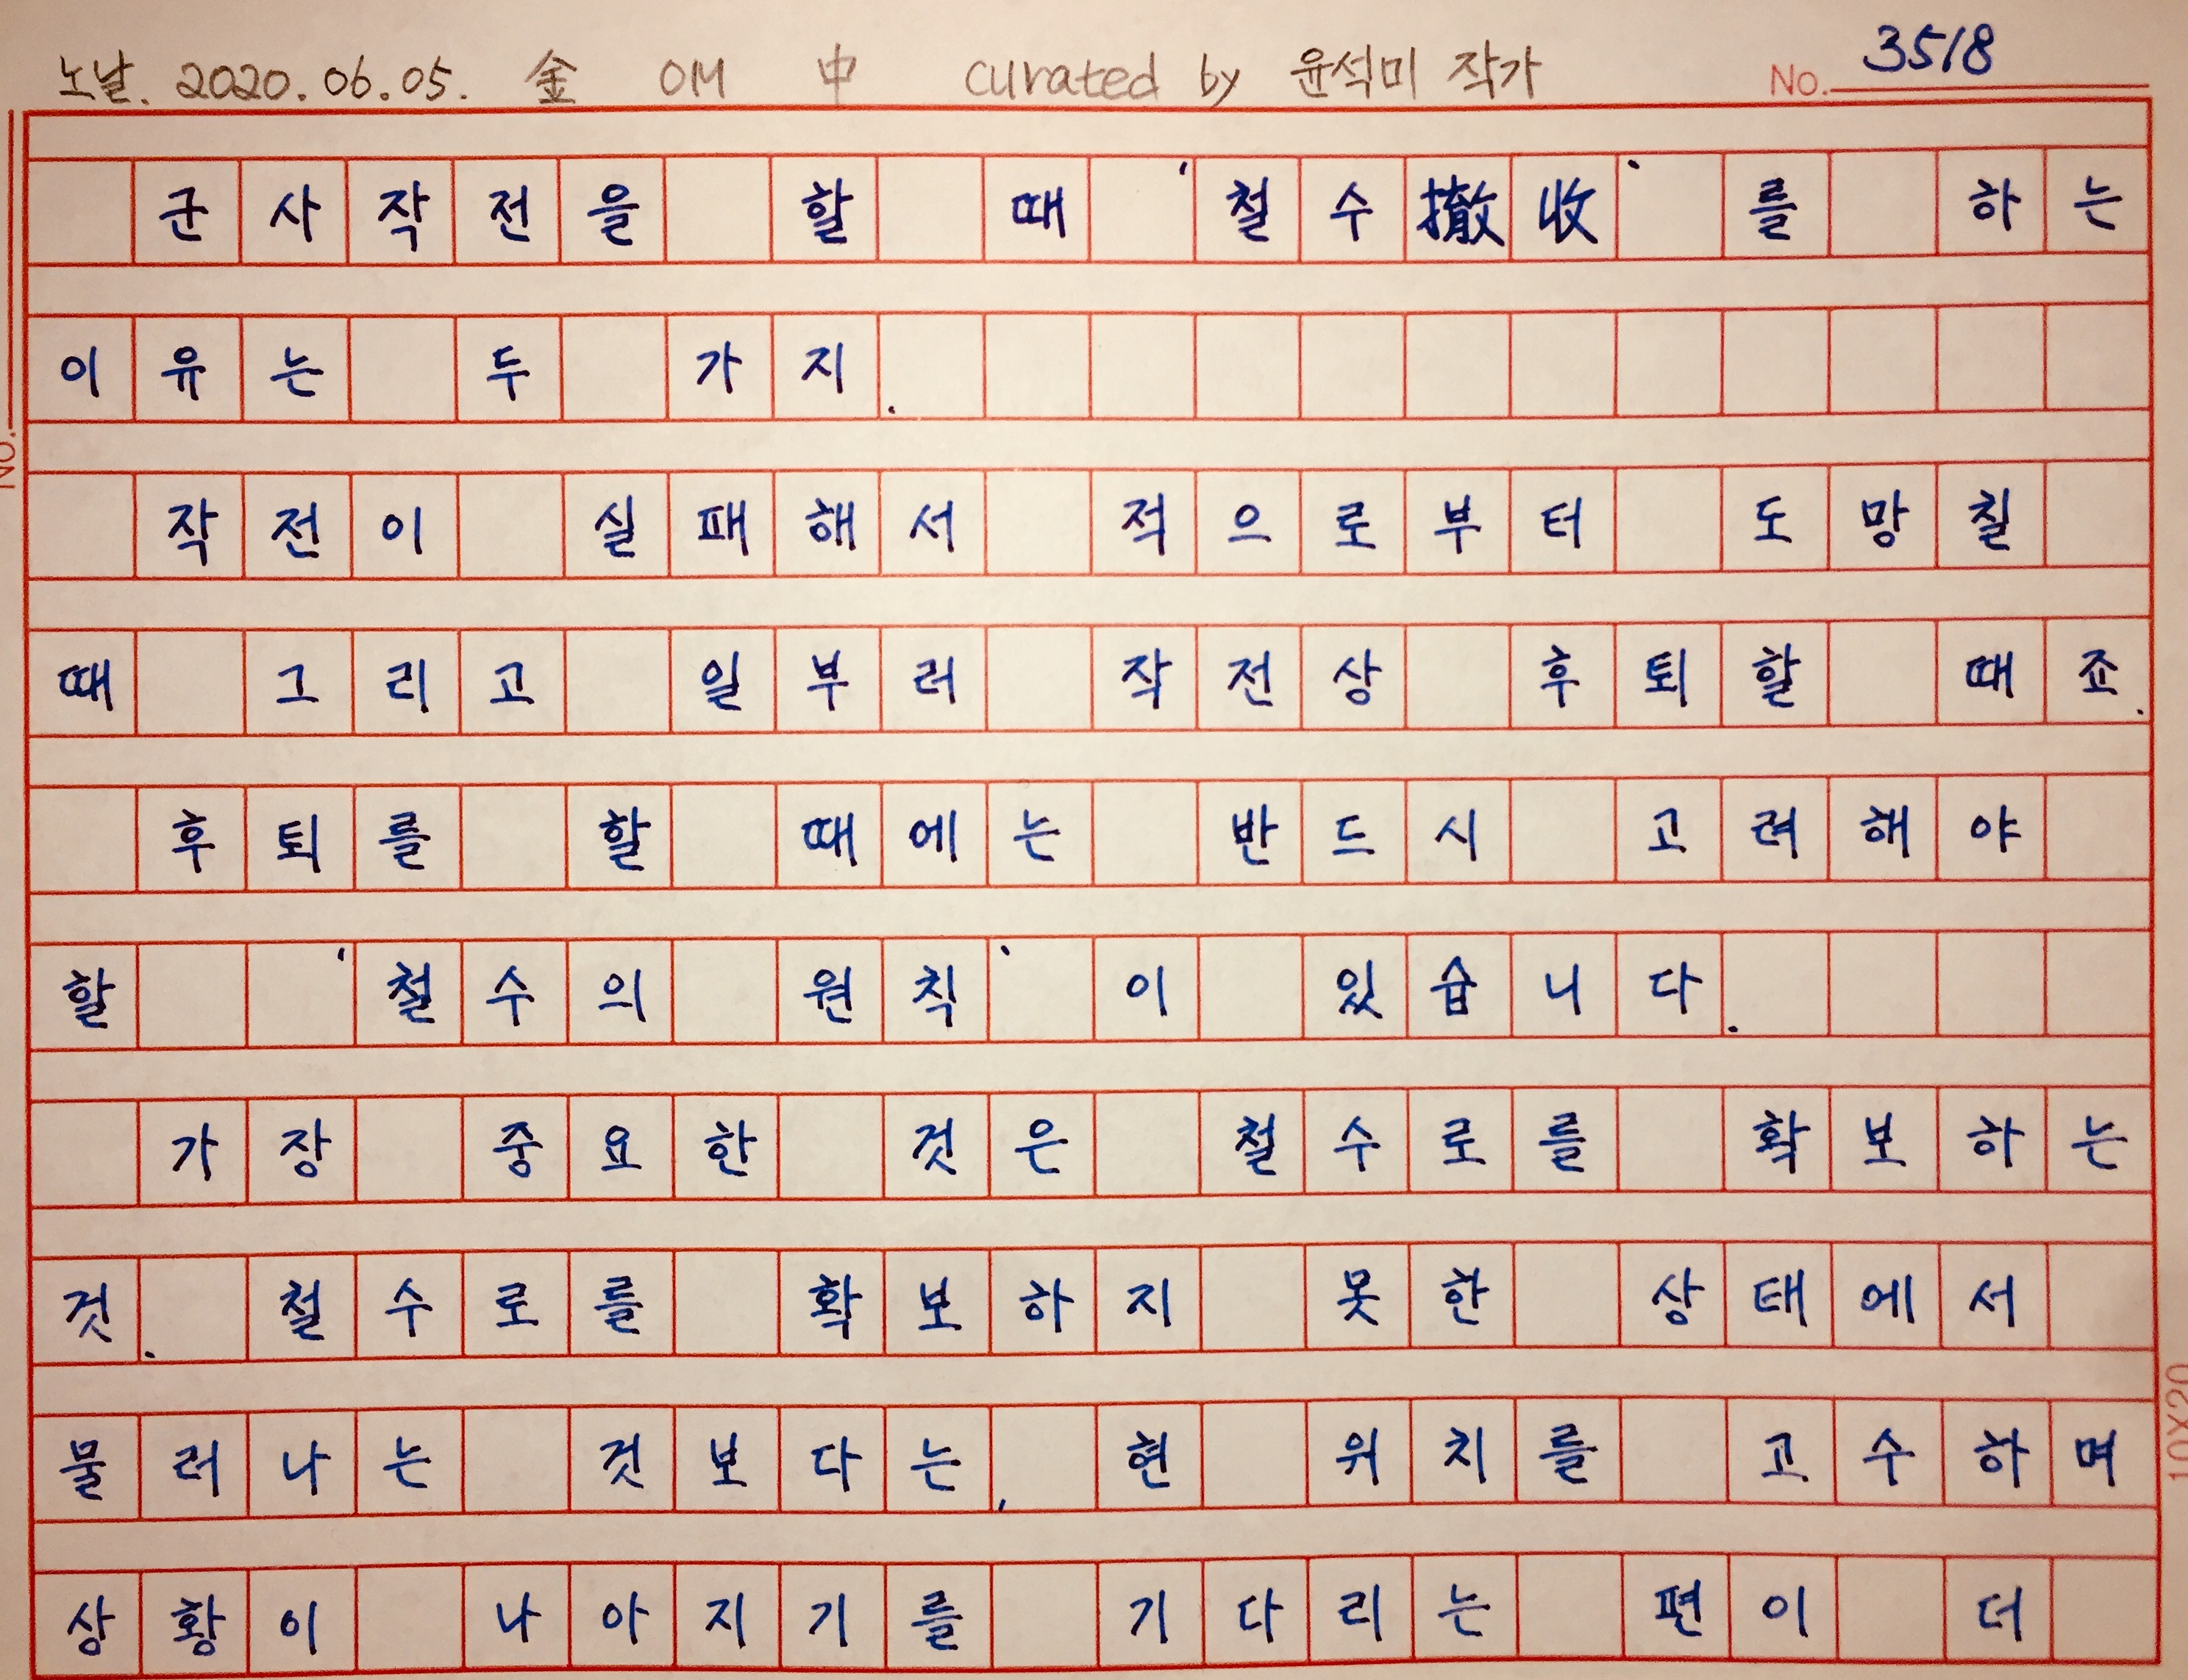 노날. 2020.06.05. 金 OM 中 curated by 윤석미 작가 No. 3518
군사작전을 할 때 '철수撤收'를 하는
이유는 두 가지.
작전이 실패해서 적으로부터 도망칠
때 그리고 일부러 작전상 후퇴할 때죠.
후퇴를 할 때에는 반드시 고려해야
할 '철수의 원칙'이 있습니다.
가장 중요한 것은 철수로를 확보하는
것. 철수로를 확보하지 못한 상태에서
물러나는 것보다는, 현 위치를 고수하며
상황이 나아지기를 기다리는 편이 더
No.
10X20